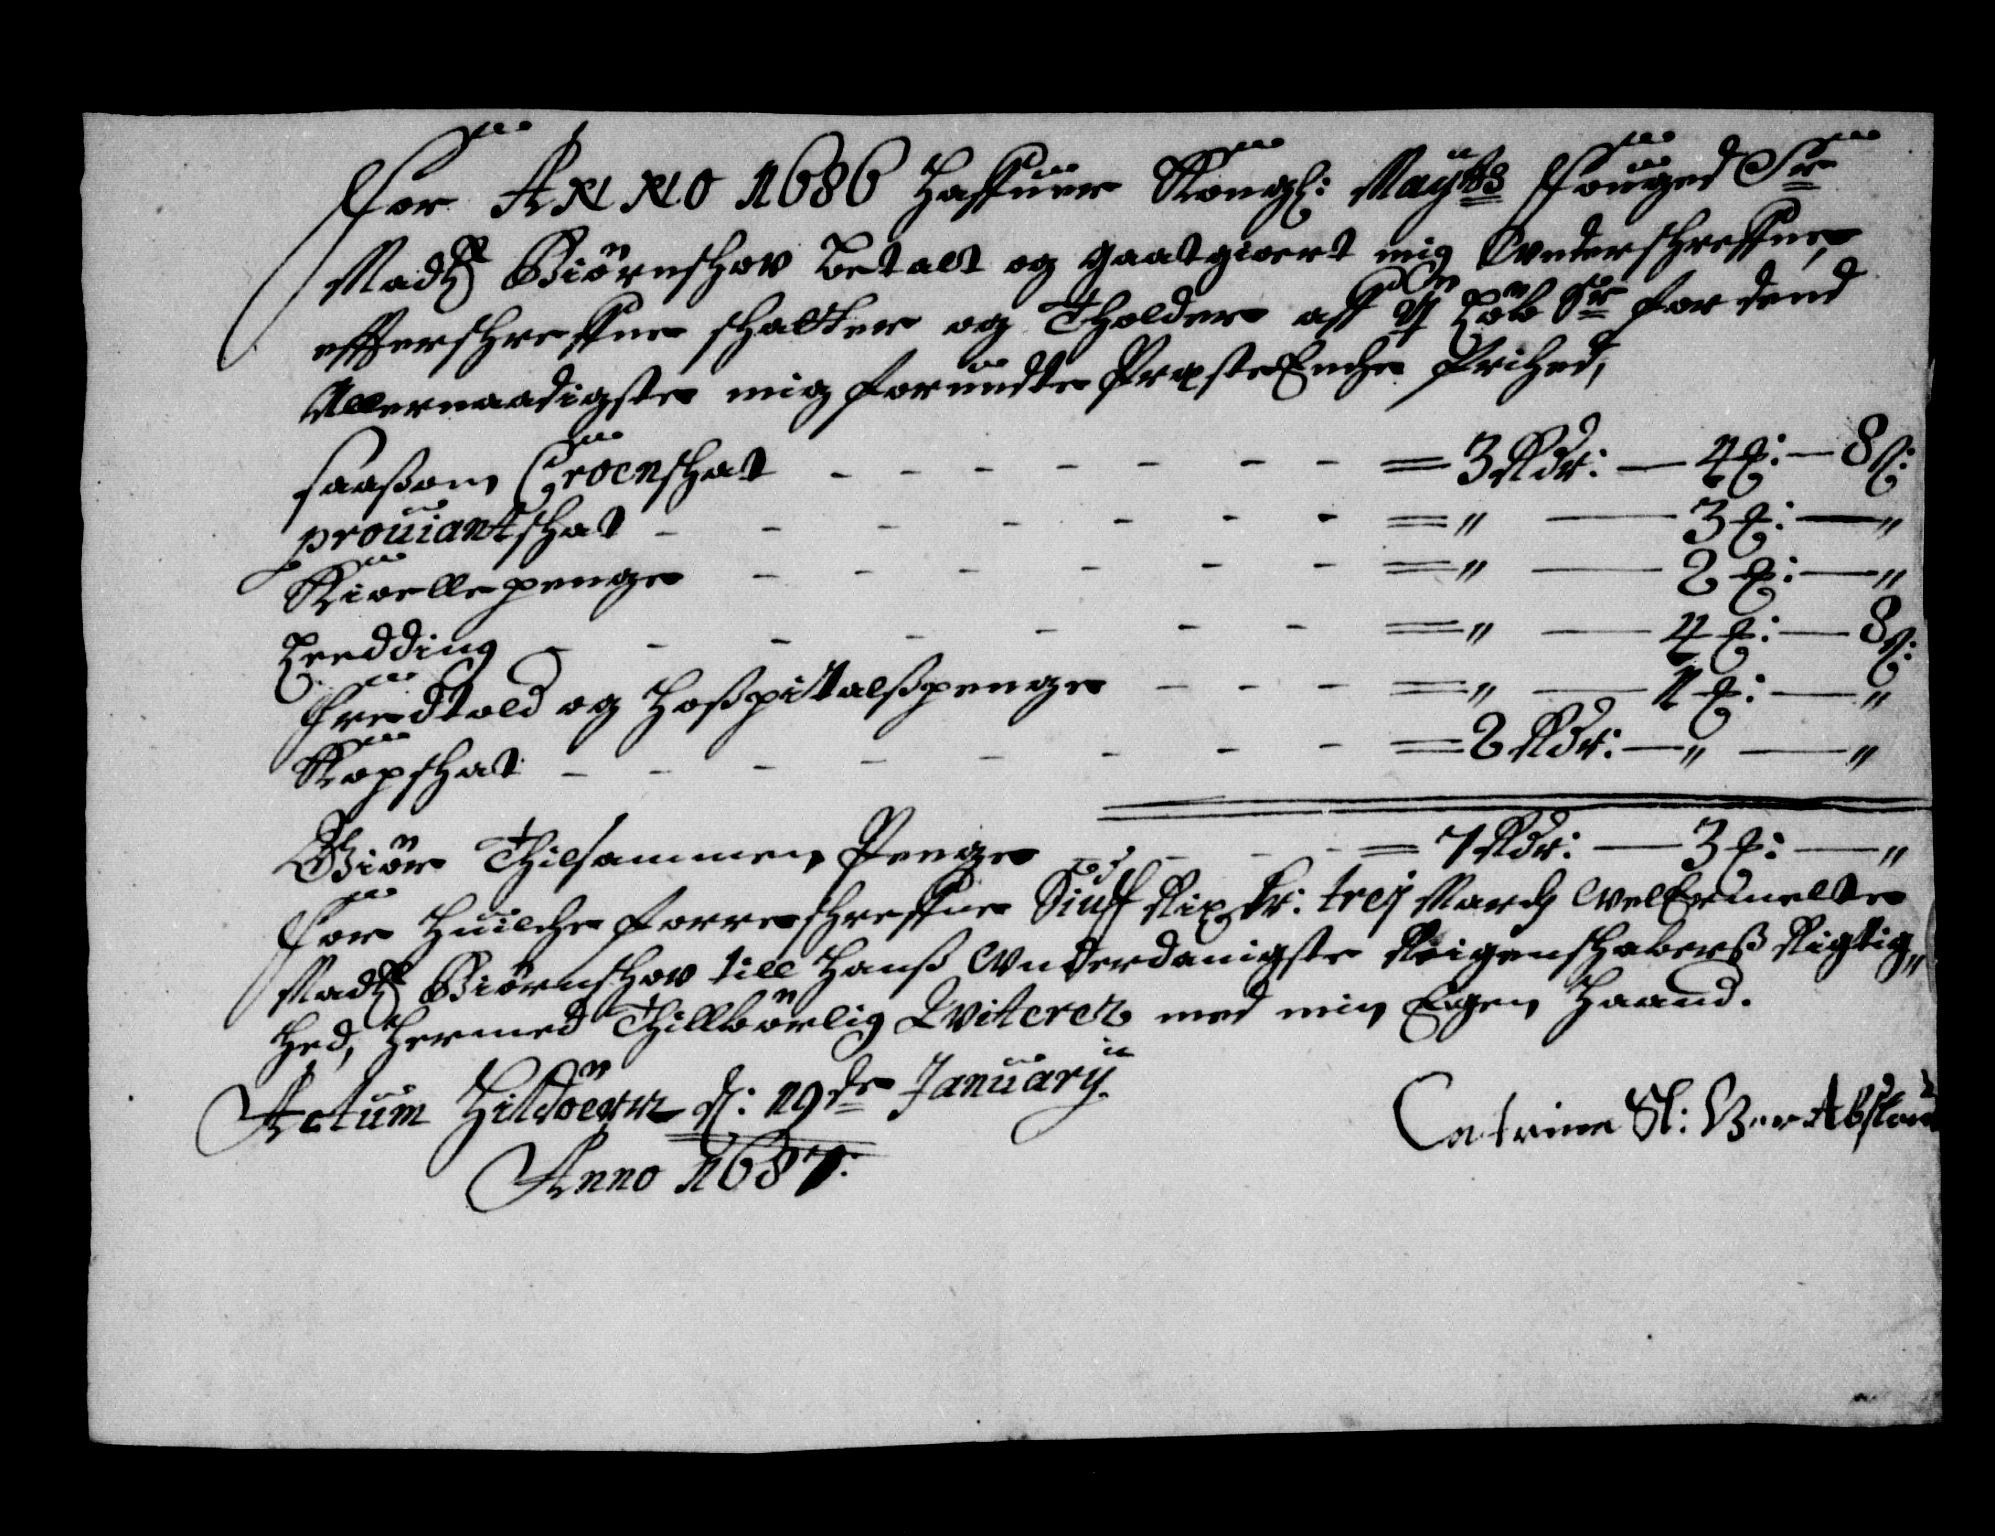 For ANNO 1686 Haffuer Kongl: Mayts Fouged Sr
Madtz Biörnschov betalt og gaatgioert mig Underschreffne,
effterschreffne schatter og Tholder aff for dend
Allernaadigste mig forundte Præste Enche Frihed,
saaßom Croenschat - - - - - - - = 3 Rdr: — 4 ℔: — 8 ß:
prouiantschat - - - - - - - = " — 3 ℔: — "
Kioellepenge - - - - - - = " — 2 ℔: — "
Leedding - - - - - - - = " — 4 ℔: — 8 ß:
Fredtold og Hoßpitalßpenge - - - = " — 1 ℔: — "
Kopschat - - - - - - - - = 2 Rdr: — " — "
Giör Thilsammen Penge - - - = 7 Rdr: — 3 ℔: — "
For Huilche forreschreffne Siuff Rix dr: trej March VelErmelte
Madtz Biörnschov till Hanß Underdanigste Reigenschaberß Rigtig„
Hed, Hermed Thillbörlig Qviterer med min Eigen Haand.
Actum Hildöenn d: 19de January
Anno 1687.
Catrina Sl: Abslon